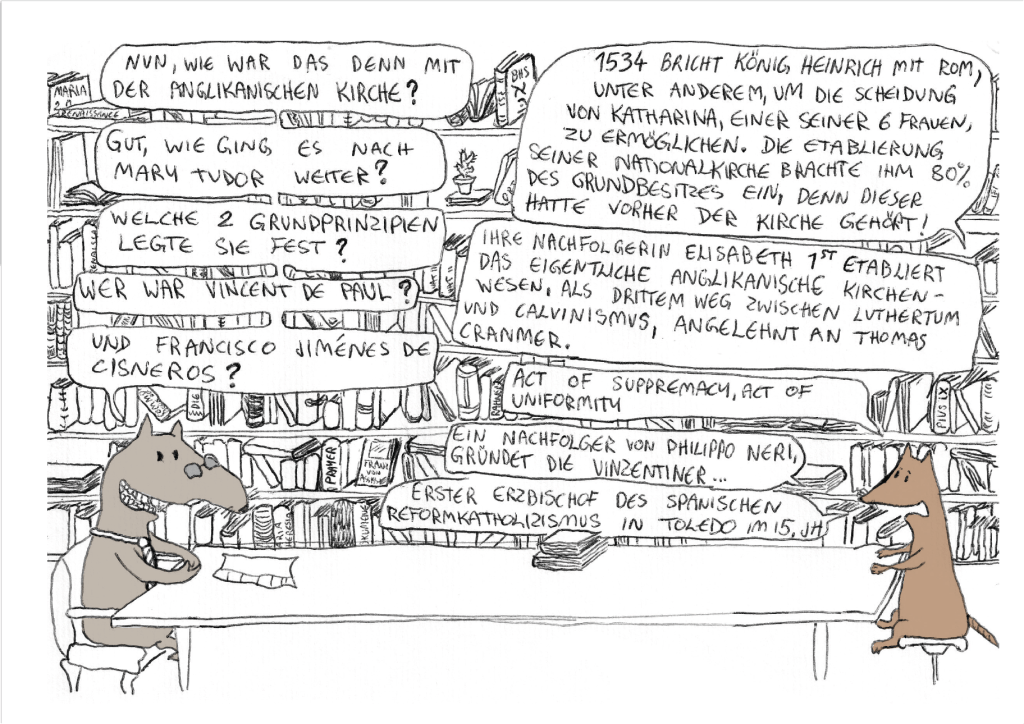 NUN, WIE WAR DAS DENN MIT
DER ANGLIKANISCHEN KIRCHE?
1534 BRICHT KÖNIG HEINRICH MIT ROM,
UNTER ANDEREM, UM DIE SCHEIDUNG
VON KATHARINA, EINER SEINER 6 FRAUEN,
ZU ERMÖGLICHEN. DIE ETABLIERUNG
SEINER NATIONALKIRCHE BRACHTE IHM 80%
DES GRUNDBESITZES EIN, DENN DIESER
HATTE VORHER DER KIRCHE GEHÖRT!
GUT, WIE GING ES NACH
MARY TUDOR WEITER?
IHRE NACHFOLGERIN ELISABETH 1ST ETABLIERT
DAS EIGENTLICHE ANGLIKANISCHE KIRCHEN-
WESEN, ALS DRITTEM WEG ZWISCHEN LUTHERTUM
UND CALVINISMUS, ANGELEHNT AN THOMAS
CRANMER.
WELCHE 2 GRUNDPRINZIPIEN
LEGTE SIE FEST?
ACT OF SUPPREMACY, ACT OF
UNIFORMITY
WER WAR VINCENT DE PAUL?
EIN NACHFOLGER VON PHILIPPO NERI,
GRÜNDET DIE VINZENTINER...
UND FRANCISCO JIMÉNES DE
CISNEROS?
ERSTER ERZBISCHOF DES SPANISCHEN
REFORMKATHOLIZISMUS IN TOLEDO IM 15. JH
MARIA
2.0
RENAISSANCE
BHS
PIUS IX